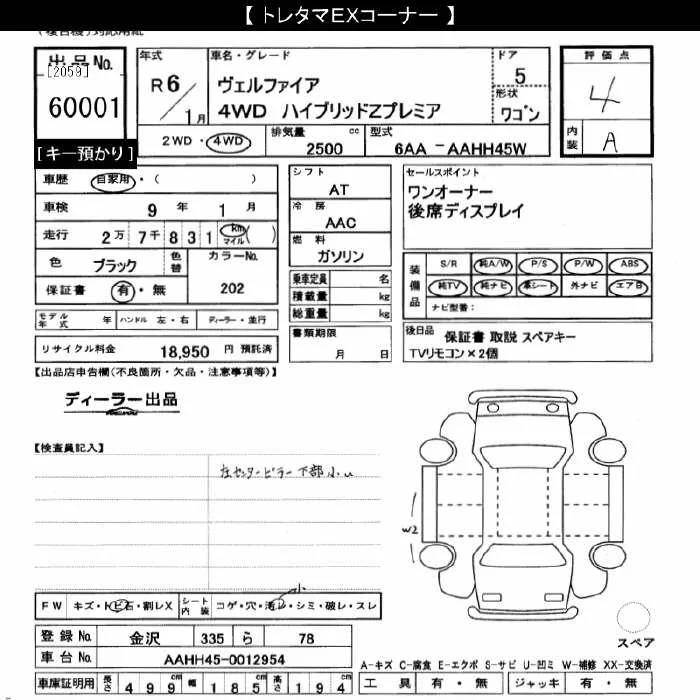 【 トレタマEXコーナー 】
出品No.
[2059]
60001
[キー預かり]
年式
R6/1月
車名・グレード
ヴェルファイア
4WD ハイブリッドZプレミア
ドア
5
形状
ワゴン
2WD・4WD
排気量
2500 cc
型式
6AA -AAHH45W
評価点
4
内装
A
車歴 自家用・( )
車検 9年 1月
走行 2万 7千 8 3 1 km マイル ( )
色 ブラック 色替
カラーNo.
202
保証書 有・無
モデル年式 年 ハンドル 左・右 ディーラー・並行
リサイクル料金 18,950 円 預託済
シフト
AT
冷房
AAC
燃料
ガソリン
乗車定員 名
積載量 kg
総重量 kg
書類期限
月 日
セールスポイント
ワンオーナー
後席ディスプレイ
装備品
S/R 純A/W P/S P/W ABS
純TV 純ナビ 革シート 外ナビ エアB
ナビ型番:
後日品 保証書 取説 スペアキー
TVリモコン×2個
【出品店申告欄(不良箇所・欠品・注意事項等)】
ディーラー出品
【検査員記入】
左センターピラー下部小い
W2
スペア
FW キズ・トビ石・割レX
シート内装 コゲ・穴・汚レ・シミ・破レ・スレ
小
登録No. 金沢 335 ら 78
車台No. AAHH45-0012954
車庫証明用 長さ 499 cm 幅 185 cm 高さ 194 cm
A-キズ C-腐食 E-エクボ S-サビ U-凹ミ W-補修 XX-交換済
工具 有・無 ジャッキ 有・無